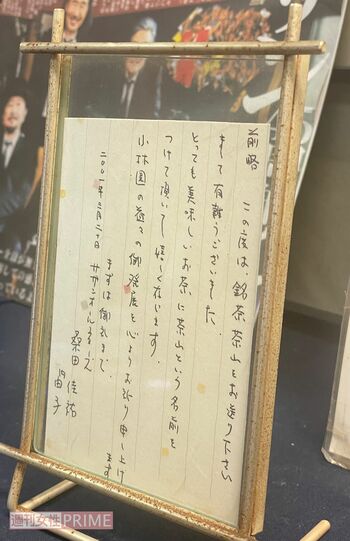 前略
この度は、銘茶茶山をお送り下さい
まして有難うございました。
とっても美味しいお茶に茶山という名前を
つけて頂いて嬉しく存います。
小林園の益々の御発展を心よりお祈り申し上げ
ます
まずは御礼まで。
二〇〇一年二月二十日
サザンオールスターズ
桑田佳祐
由子
週刊女性PRIME